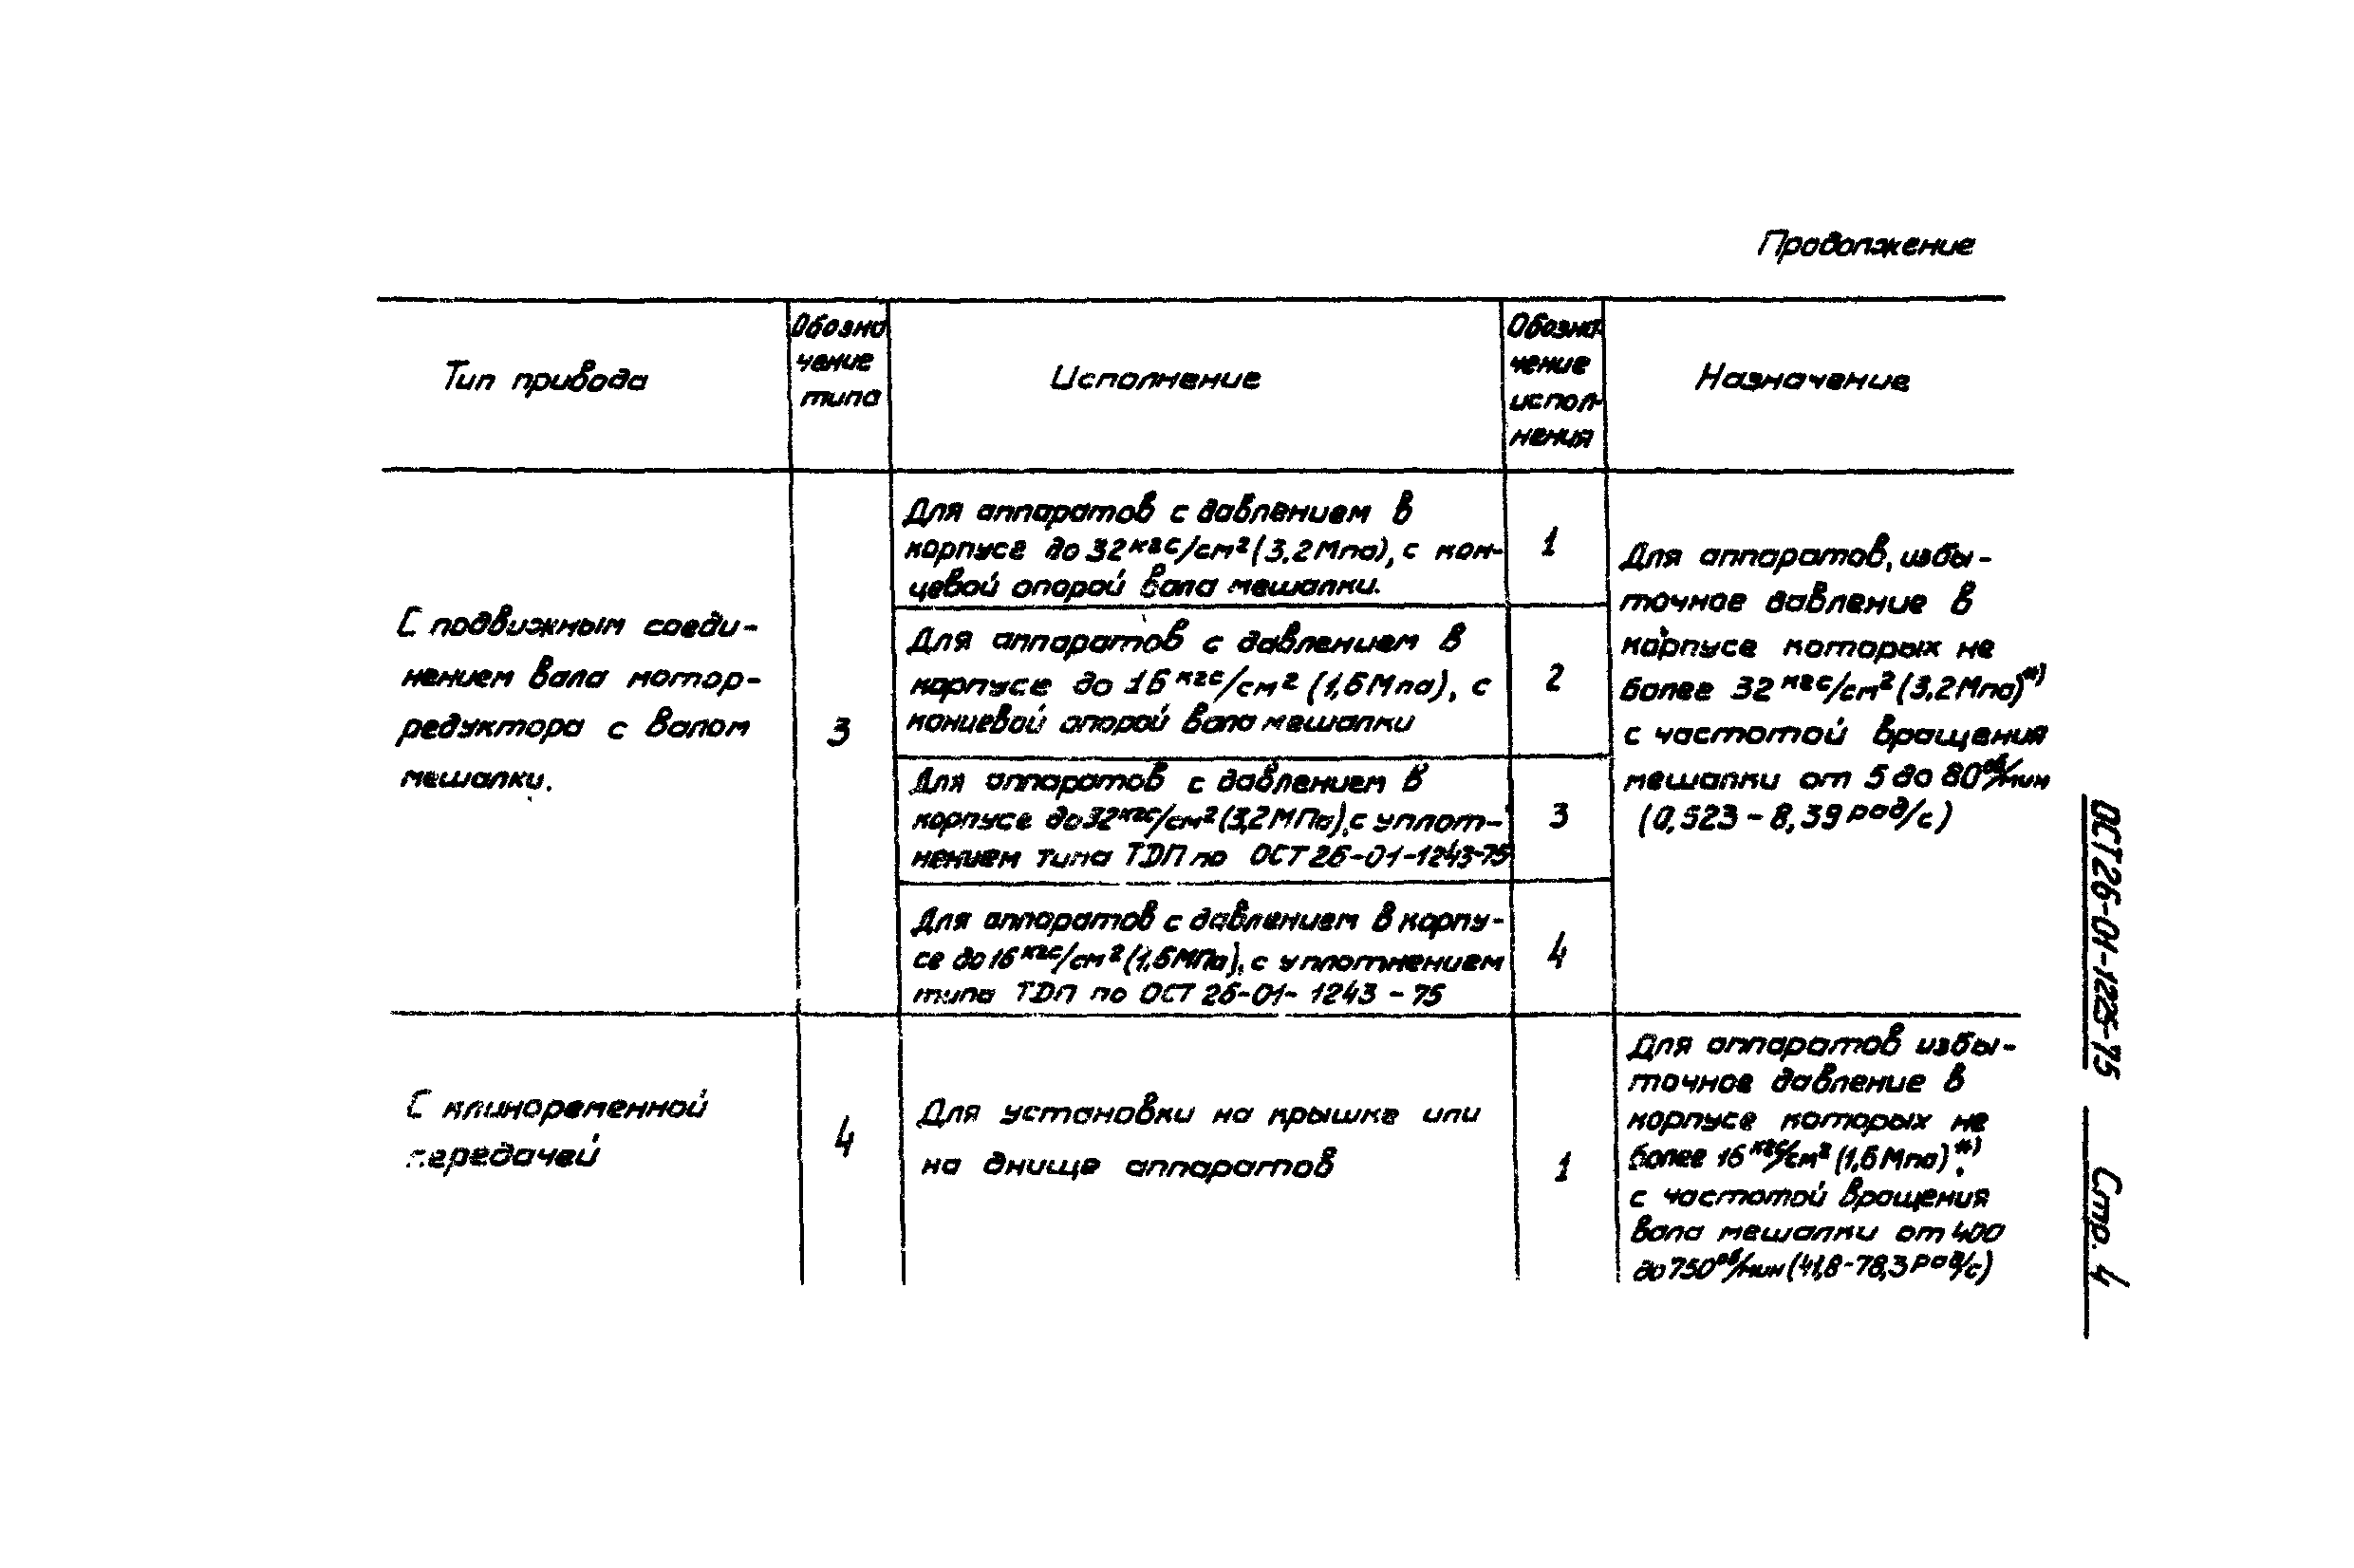 Продолжение
Тип привода
Обозна
чение
типа
Исполнение
Обозна-
чение
испол-
нения
Назначение
С подвижным соеди-
нением вала мотор-
редуктора с валом
мешалки.
3
Для аппаратов с давлением в
корпусе до 32 кгс/см² (3,2 Мпа), с кон-
цевой опорой вала мешалки.
1
Для аппаратов с давлением в
корпусе до 16 кгс/см² (1,6 Мпа), с
концевой опорой вала мешалки
2
Для аппаратов с давлением в
корпусе до 32 кгс/см² (3,2 МПа), с уплот-
нением типа ТДП по ОСТ 26-01-1243-75
3
Для аппаратов с давлением в корпу-
се до 16 кгс/см² (1,6 МПа), с уплотнением
типа ТДП по ОСТ 26-01-1243-75
4
Для аппаратов, избы-
точное давление в
корпусе которых не
более 32 кгс/см² (3,2 Мпа)*)
с частотой вращения
мешалки от 5 до 80 об/мин
(0,523 - 8,39 рад/с)
С клиноременной
передачей
4
Для установки на крышке или
на днище аппаратов
1
Для аппаратов избы-
точное давление в
корпусе которых не
более 16 кгс/см² (1,6 Мпа)*),
с частотой вращения
вала мешалки от 400
до 750 об/мин (41,8-78,3 рад/с)
ОСТ 26-01-1225-75 Стр. 4